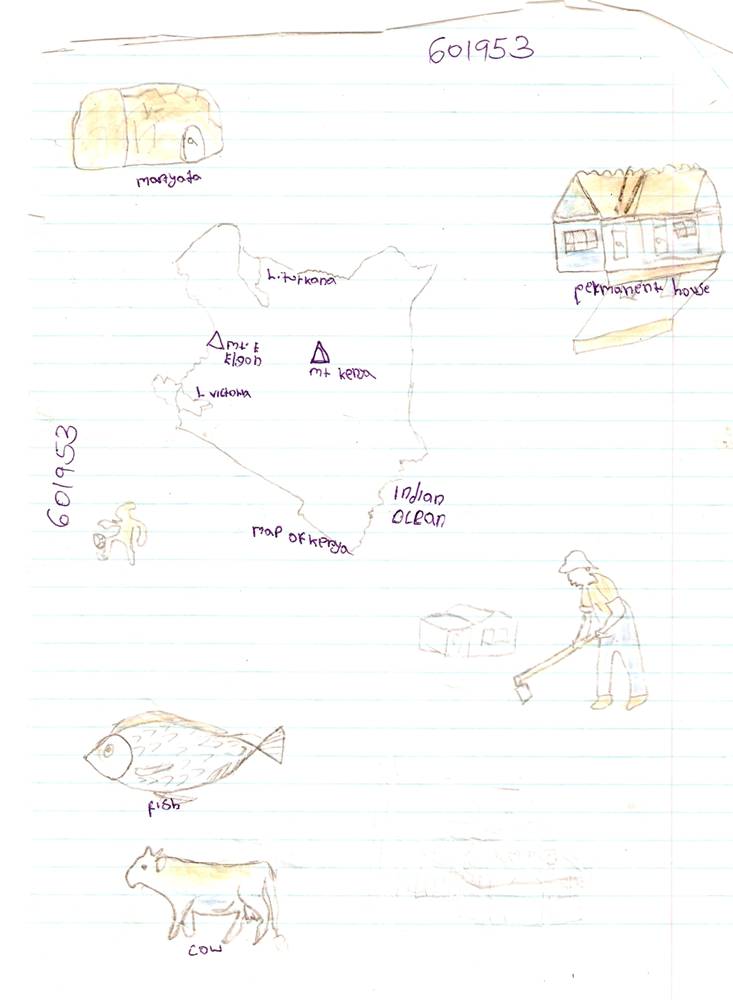 601953
manyata
permanent house
L. turkana
mt. E
Elgon
mt kenya
L victoria
601953
Indian
Ocean
map of kenya
fish
cow